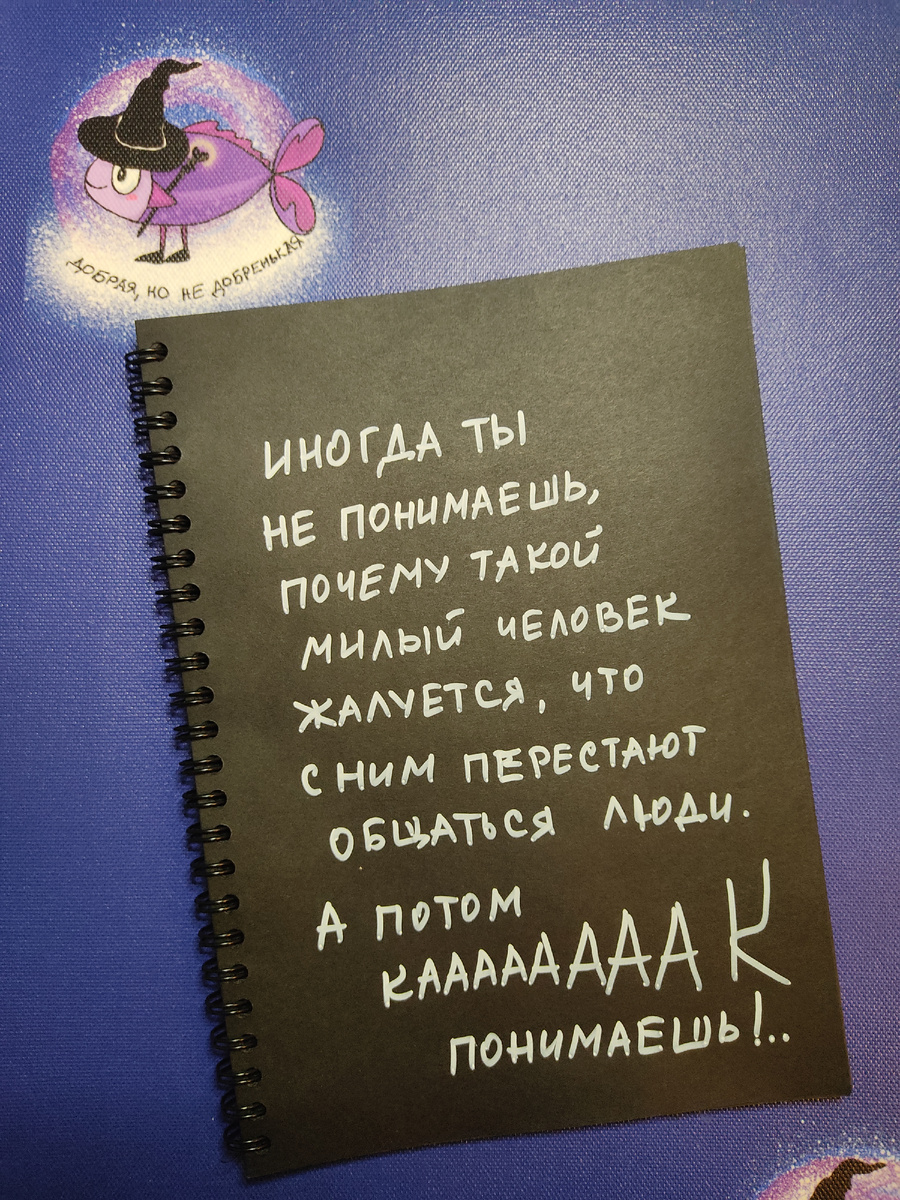 ДОБРАЯ, НО НЕ ДОБРЕНЬКАЯ
ИНОГДА ТЫ
НЕ ПОНИМАЕШЬ,
ПОЧЕМУ ТАКОЙ
МИЛЫЙ ЧЕЛОВЕК
ЖАЛУЕТСЯ, ЧТО
С НИМ ПЕРЕСТАЮТ
ОБЩАТЬСЯ ЛЮДИ.
А ПОТОМ
КАААААААА К
ПОНИМАЕШЬ!..